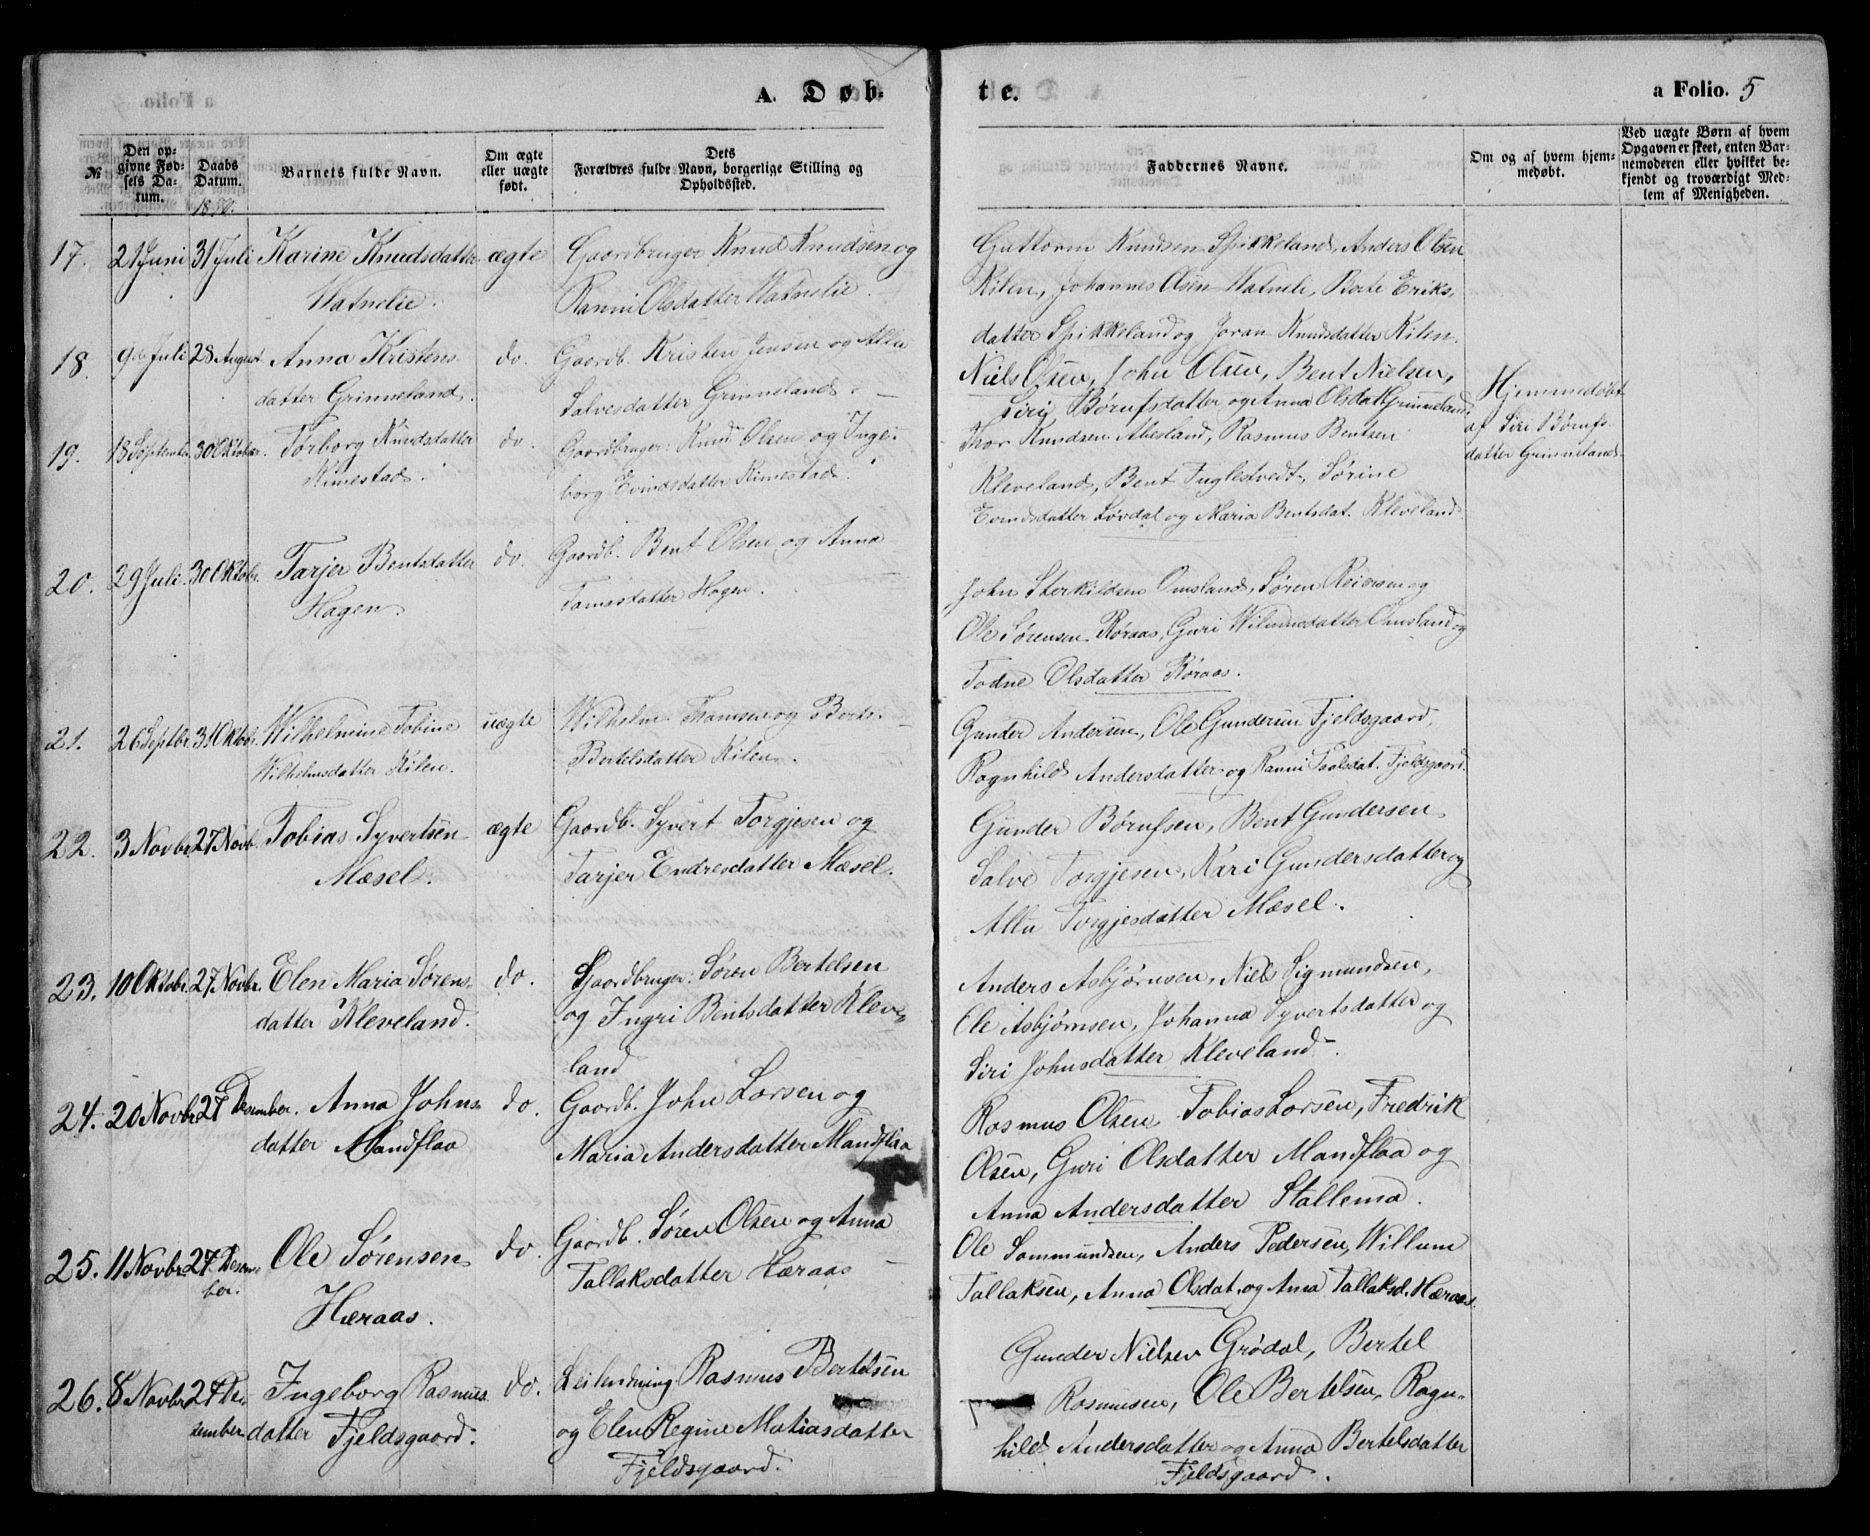 A. Døb-
te.
a Folio. 5
№
Den op-
givne Fød-
sels Da-
tum.
Daabs
Datum.
Barnets fulde Navn.
Om ægte
eller uægte
født.
Dets
Forældres fulde Navn, borgerlige Stilling og
Opholdssted.
Faddernes Navne.
Om og af hvem hjem-
medøbt.
Ved uægte Børn af hvem
Opgaven er skeet, enten Bar-
nemoderen eller hvilket be-
kjendt og troværdigt Med-
lem af Menigheden.
17. 21 Juni 31 Juli Karine Knudsdatter ægte Gaardbruger Knud Knudsen og
Watnelie. Ranni Olsdatter Watnelie.
Guttorm Knudsen Spikkeland, Anders Olsen
Kilen, Johannes Olsen Watneli, Berte Eriks-
datter Spikkeland og Joran Knudsdatter Kilen.
18. 9de Juli 28 August Anna Kristens- do. Gaardb. Kristen Jensen og Allu
datter Grinneland. Salvesdatter Grinneland.
Niels Olsen, John Olsen, Bent Nielsen,
Siri Børufsdatter og Anna Olsdat Grinneland
Hjemmedøbt
af Siri Børufs-
datter Grinneland
19. 18 September 30 Oktober. Torborg Knudsdatter do. Gaardbruger: Knud Olsen og Inge-
Kimestad. borg Evindsdatter Kimestad.
Thor Knudsen Abesland, Rasmus Bentsen
Kleveland, Bent Fuglestvedt, Sørine
Evendsdatter Løvdal og Maria Bentsdat. Kleveland
20. 29 Juli. 30 Oktobr. Tarjer Bentsdatter do. Gaardb. Bent Olsen og Anna
Hagen. Tomesdatter Hagen.
John Sterkildsen Omsland, Søren Reiersen og
Ole Sørensen Røraas, Guri Wilumsdatter Omsland og
Todne Olsdatter Røraas.
21. 26 Septbr. 31 Oktobr. Wilhelmine Tobine uægte Wilhelm Thomsen og Berte
Wilhelmsdatter Kilen. Bertelsdatter Kilen.
Gunder Andersen, Ole Gundersen Fjeldsgaard,
Ragnhild Andersdatter og Ranni Paalsdat. Fjeldsgaard.
22. 3 Novbr. 27 Novb. Tobias Syvertsen ægte Gaardb. Syvert Torgjesen og
Mæsel. Tarjer Endresdatter Mæsel.
Gunder Børufsen, Bent Gundersen
Salve Torgjesen, Kari Gundersdatter og
Allu Torgjesdatter Mæsel.
23. 10 Oktobr. 27 Novbr. Elen Maria Sørens- do. Gaardbruger: Søren Bertelsen
datter Kleveland. og Ingri Bentsdatter Kleve-
land
Anders Asbjørnsen, Niels Sigmundsen,
Ole Asbjørnsen, Johanna Syvertsdatter og
Siri Johnsdatter Kleveland.
24. 20 Novbr. 27 Desember. Anna Johns- do. Gaardb. John Larsen og
datter Mandflaa Maria Andersdatter Mandflaa
Rasmus Olsen Tobias Larsen, Fredrik
Olsen, Guri Olsdatter Mandflaa og
Anna Andersdatter Stallemo.
25. 11 Novbr. 27 Desem- Ole Sørensen do. Gaardb. Søren Olsen og Anna
ber. Hæraas. Tallaksdatter Hæraas
Ole Sammundsen, Anders Pedersen, Willum
Tallaksen, Anna Olsdat. og Anna Tallaksd. Hæraas.
26. 8 Novbr 27 De- Ingeborg Rasmus- do. Leilending Rasmus Bertelsen
sember datter Fjeldsgaard. og Elen Regine Matiasdatter
Fjeldsgaard.
Gunder Nielsen Grødal, Bertel
Rasmusen, Ole Bertelsen, Ragn-
hild Andersdatter og Anna Bertelsdatter
Fjeldsgaard.